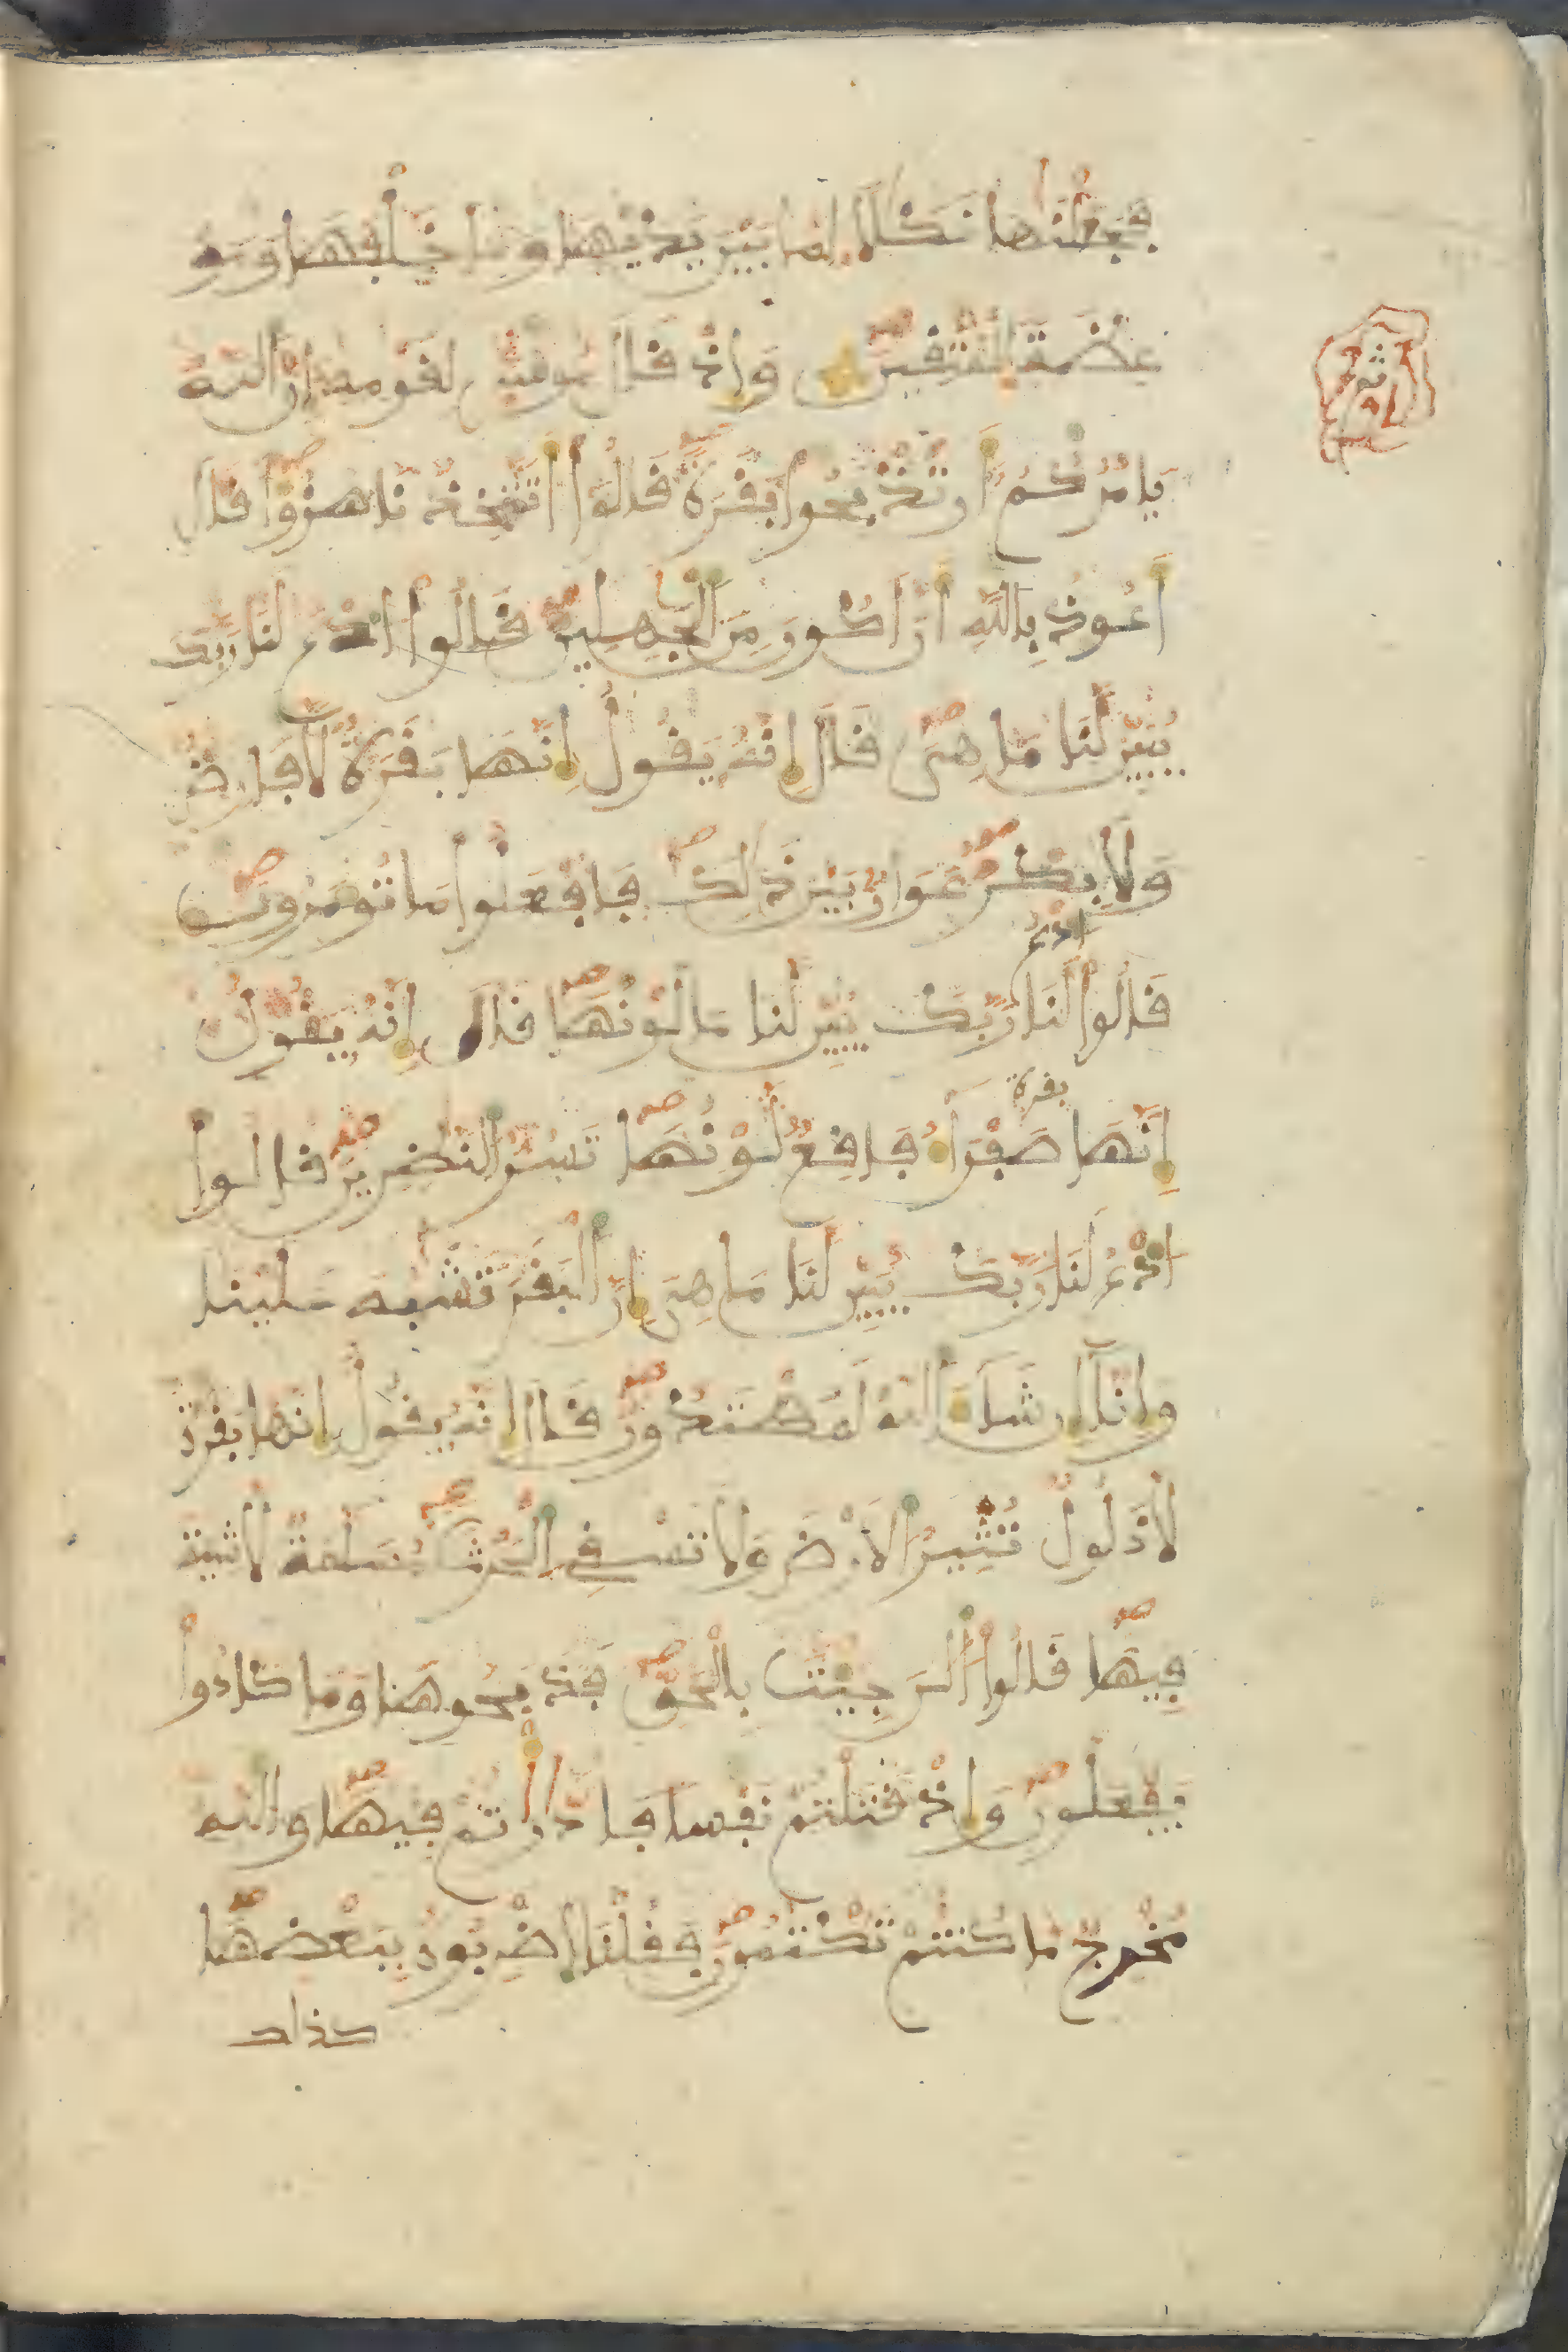 فَجَعَلْنَٰهَا نَكَٰلًا لِّمَا بَيْنَ يَدَيْهَا وَمَا خَلْفَهَا وَمَوْ
عِظَةً لِّلْمُتَّقِينَ وَإِذْ قَالَ مُوسَىٰ لِقَوْمِهِ إِنَّ اللَّهَ
يَامُرُكُمُ أَن تَذْبَحُوا بَقَرَةً قَالُوا أَتَتَّخِذُنَا هُزُؤًا قَالَ
أَعُوذُ بِاللَّهِ أَنَ اَكُونَ مِنَ الْجَٰهِلِينَ قَالُوا ادْعُ لَنَا رَبَّكَ
يُبَيِّن لَّنَا مَا هِيَ قَالَ إِنَّهُ يَقُولُ إِنَّهَا بَقَرَةٌ لَّا فَارِضٌ
وَلَا بِكْرٌ عَوَانٌ بَيْنَ ذَٰلِكَ فَافْعَلُوا مَا تُومَرُونَ
ادْعُ
قَالُوا لَنَا رَبَّكَ يُبَيِّن لَّنَا مَا لَوْنُهَا قَالَ إِنَّهُ يَقُولُ
بقرة
إِنَّهَا صَفْرَاءُ فَاقِعٌ لَّوْنُهَا تَسُرُّ النَّٰظِرِينَ قَالُوا
ادْعُ لَنَا رَبَّكَ يُبَيِّن لَّنَا مَا هِيَ إِنَّ الْبَقَرَ تَشَٰبَهَ عَلَيْنَا
وَإِنَّا إِن شَاءَ اللَّهُ لَمُهْتَدُونَ قَالَ إِنَّهُ يَقُولُ إِنَّهَا بَقَرَةٌ
لَّا ذَلُولٌ تُثِيرُ الْأَرْضَ وَلَا تَسْقِي الْحَرْثَ مُسَلَّمَةٌ لَّا شِيَةَ
فِيهَا قَالُوا الَٰنَ جِئْتَ بِالْحَقِّ فَذَبَحُوهَا وَمَا كَادُوا
يَفْعَلُونَ وَإِذْ قَتَلْتُمْ نَفْسًا فَادَّٰرَٰأْتُمْ فِيهَا وَاللَّهُ
مُخْرِجٌ مَّا كُنتُمْ تَكْتُمُونَ فَقُلْنَا اضْرِبُوهُ بِبَعْضِهَا
كذلك